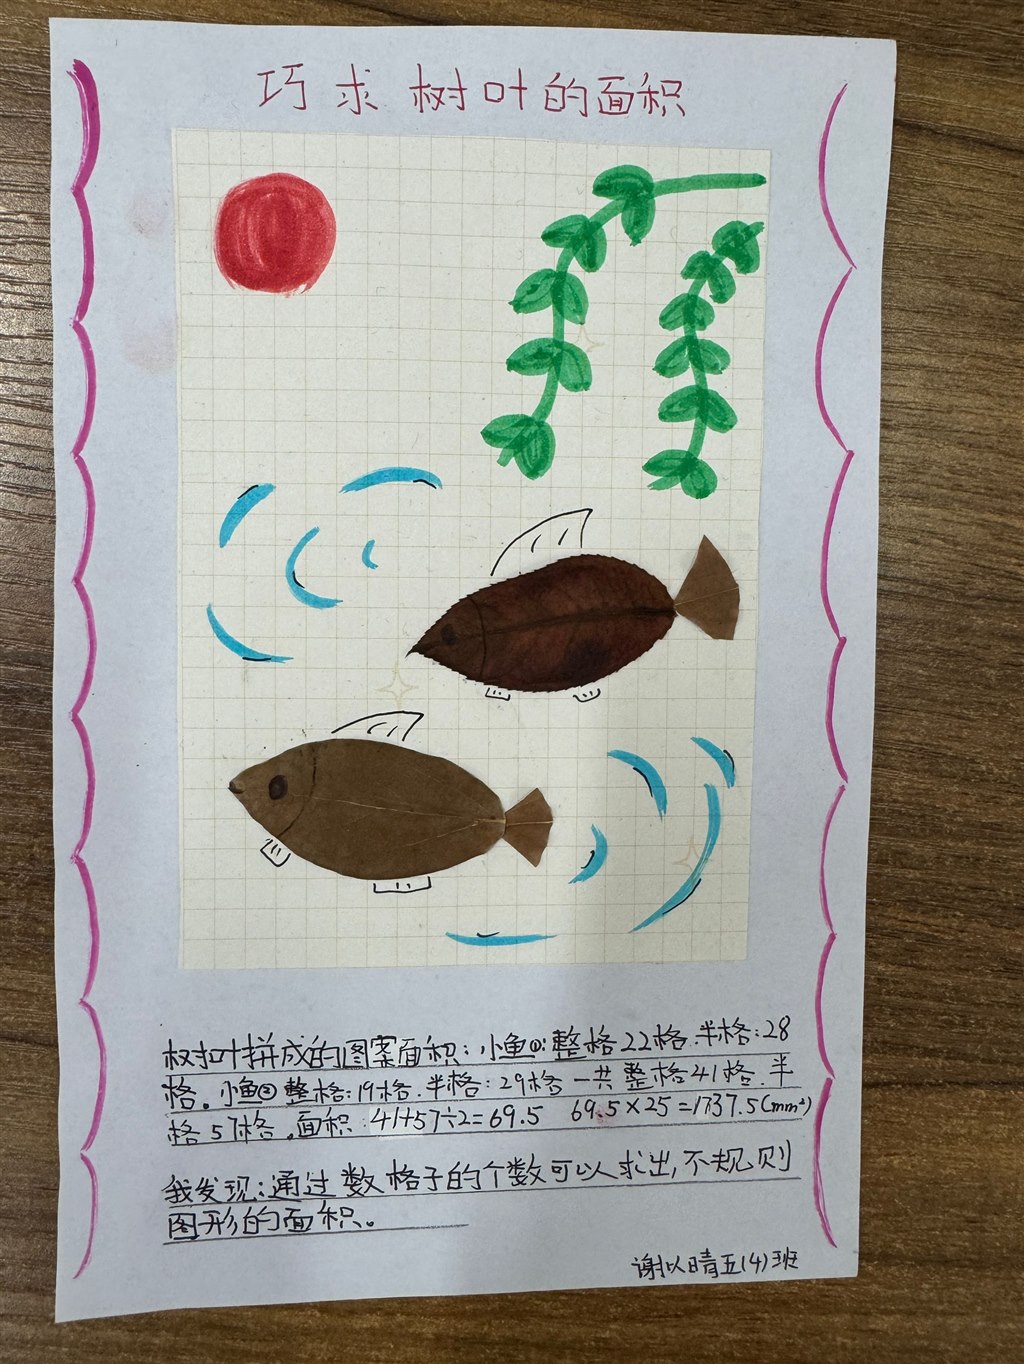 巧求树叶的面积
树叶拼成的图案面积：小鱼①：整格22格.半格：28
格。小鱼②整格：19格.半格：29格一共整格41格.半
格57格.面积：41+57÷2=69.5 69.5×25=1737.5(mm²)
我发现：通过数格子的个数可以求出,不规则
图形的面积。
谢以晴五(4)班